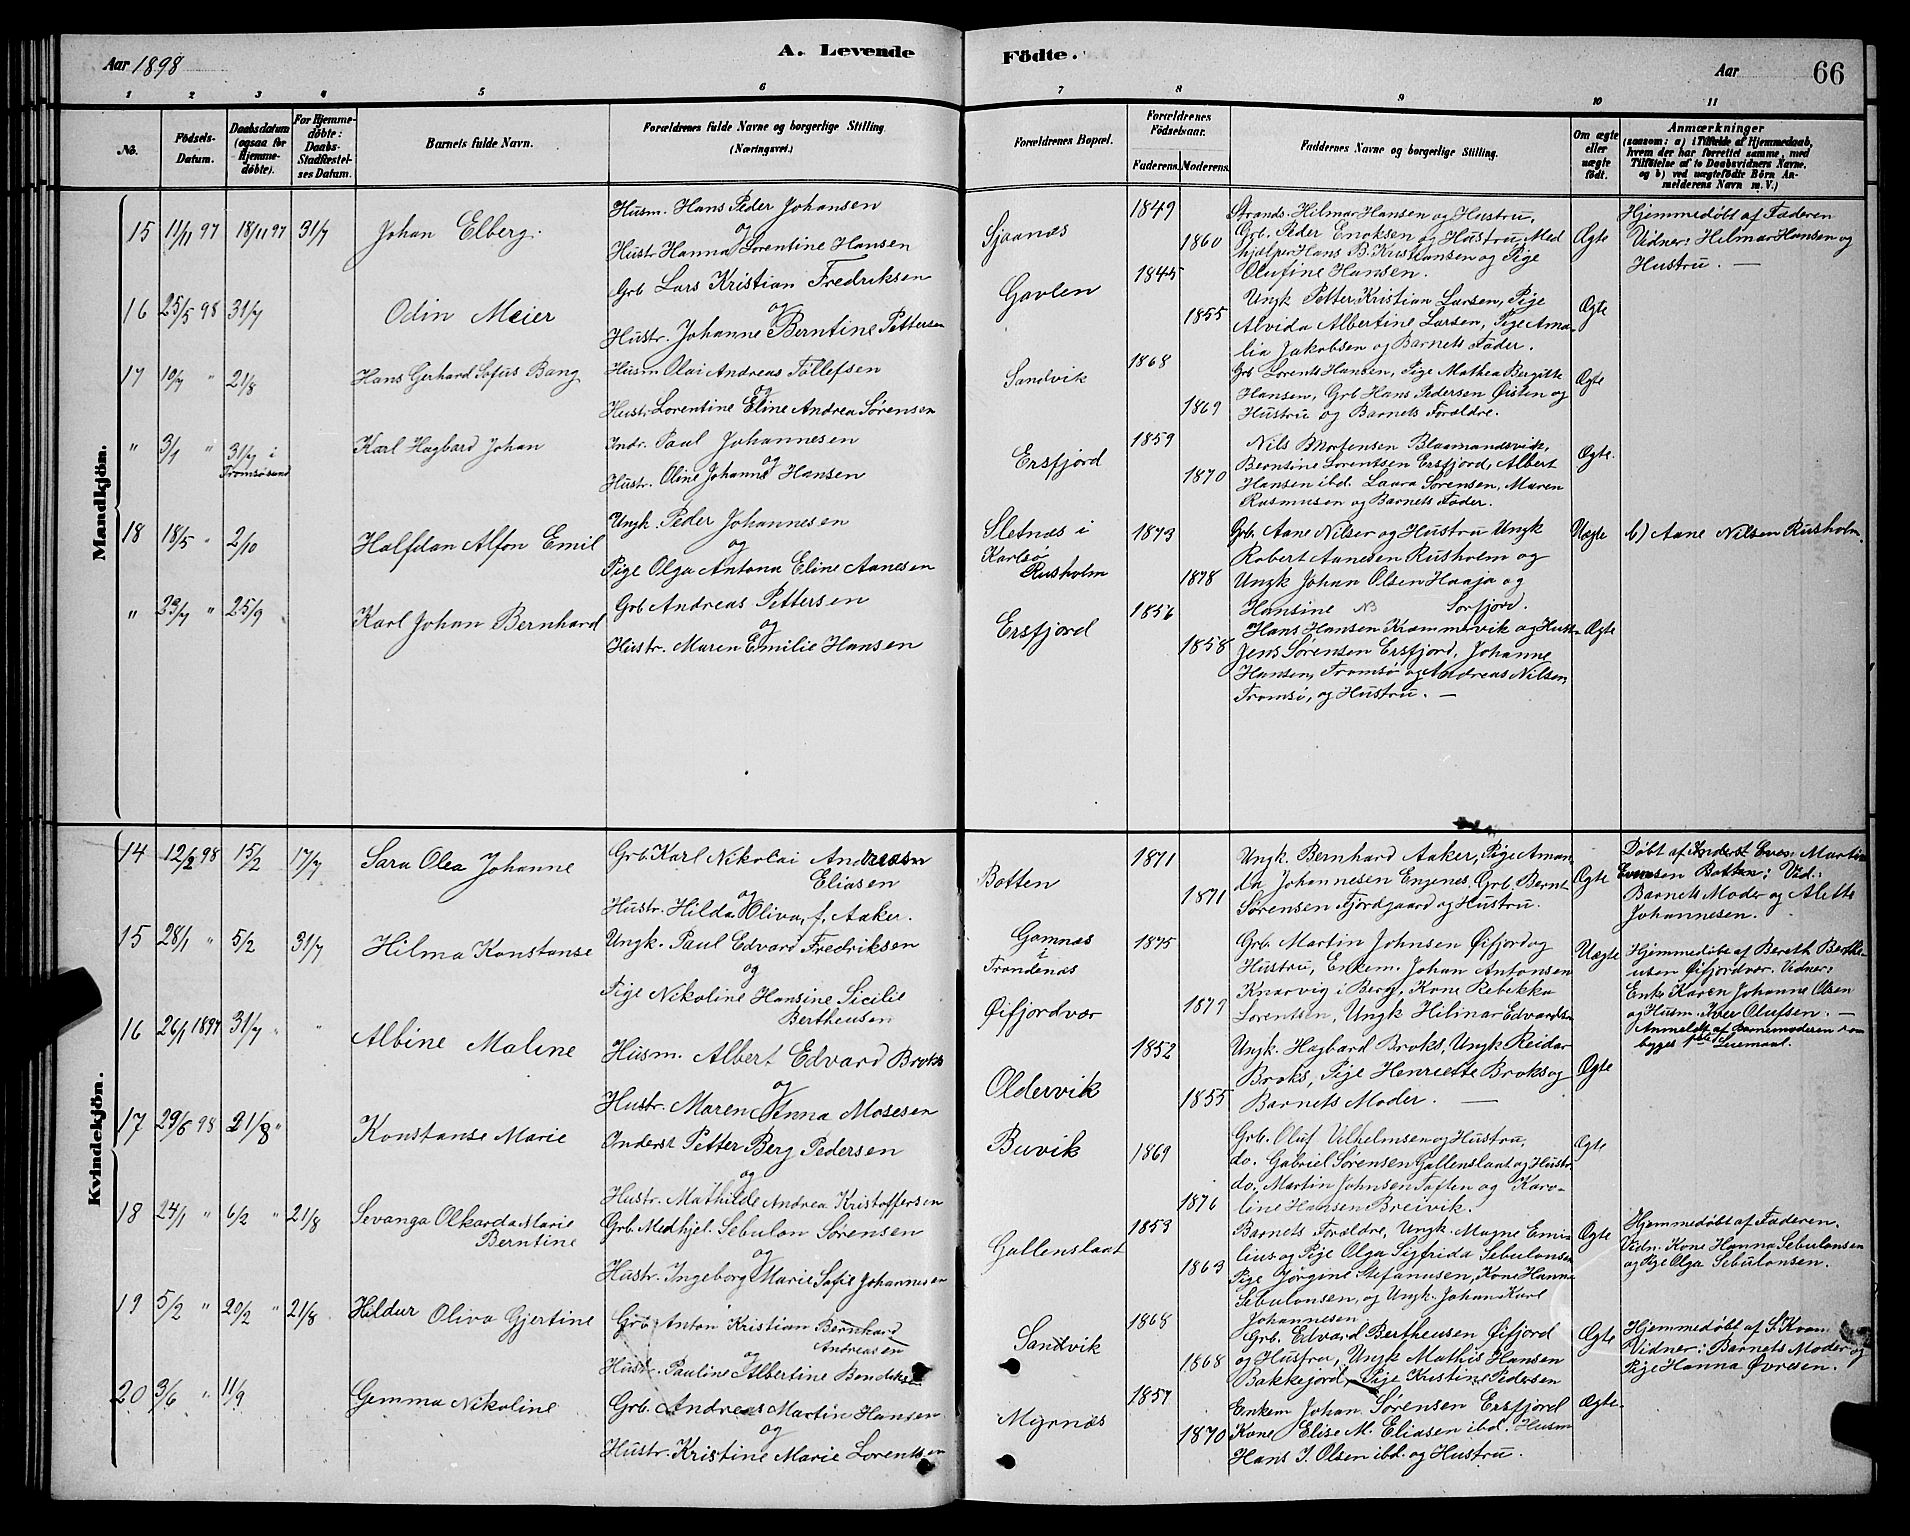 Aar 1898
A. Levende
Födte.
Aar
66
1 2 3 4 5 6 7 8 9 10 11
No.
Födsels-Datum.
Daabsdatum (ogsaa for Hjemmedöbte).
For Hjemmedöbte: Daabs-Stadfæstelses Datum.
Barnets fulde Navn.
Forældrenes fulde Navne og borgerlige Stilling
(Næringsvei.)
Forældrenes Bopæl.
Forældrenes Födselsaar.
Faderens. Moderens.
Faddernes Navne og borgerlige Stilling.
Om ægte eller uægte födt.
Anmærkninger
(saasom: a) i Tilfælde af Hjemmedaab,
hvem der har forrettet samme, med
Tilföielse af to Daabsvidners Navne.
og b) ved uægtefödte Börn Anmelderens Navn m. V.)
Mandkjön.
15 11/11 97 18/11 97 31/7 Johan Elberg.
Husm. Hans Peder Johansen
og
Hustr. Hanna Lorentine Hansen
Sjaanæs 1849 1860
Strands. Hilmar Hansen og Hustru,
Grb. Peder Enoksen og Hustru, Med
hjælper Hans B. Kristiansen og Pige
Olufine Hansen.
Ægte
Hjemmedøbt af Faderen
Vidner: Hilmar Hansen og
Hustru. —
16 25/5 98 31/7 Odin Meier
Grb Lars Kristian Fredriksen
og
Hustr. Johanne Berntine Pettersen
Gavlen 1845 1855
Ungk Petter Kristian Larsen, Pige
Alvida Albertine Larsen, Pige Ama-
lia Jakobsen og Barnets Fader.
Ægte
17 10/7 " 21/8 Hans Gerhard Sofus Bang
Husm Olai Andreas Tollefsen
og
Hustr Lorentine Eline Andrea Sørensen
Sandvik 1868 1869
Grb Lorents Hansen, Pige Mathea Bergitte
Hansen, Grb Hans Pedersen Øisten og
Hustru og Barnets Forældre.
Ægte
" 3/1 " 31/7 i Tromsøsund Karl Hagbard Johan
Indr. Paul Johannesen
og
Hustr. Oline Johanne Hansen
Ersfjord 1859 1870
Nils Mortensen Blaamandsvik,
Bernsine Lorentsen Ersfjord, Albert
Hansen ibd. Laura Sørensen, Maren
Rasmusen og Barnets Fader.
Ægte.
18 18/5 " 2/10 Halfdan Alfon Emil
Ungk. Peder Johannesen
og
Pige Olga Antona Eline Aanesen
Sletnæs i
Karlsø
Rusholm
1873 1878
Grb. Aane Nilsen og Hustru Ungk
Robert Aanesen Rusholm og
Ungk Johan Olsen Haaja og
Hansine NB Sorfjord.
Uægte
b) Aane Nilsen Rusholm.
" 23/7 " 25/9 Karl Johan Bernhard
Grb Andreas Pettersen
og
Hustr. Maren Emilie Hansen
Ersfjord 1856 1858
Hans Hansen Kræmmervik og Hustr
Jens Sørensen Ersfjord, Johanne
Hansen, Tromsø og Andreas Nilsen,
Tromsø, og Hustru. —
Ægte
Kvindekjön.
14 12/2 98 15/2 17/7 Sara Olea Johanne
Grb. Karl Nikolai Andreasn
Eliasen
og
Hustr. Hilda Oliva, f. Aaker.
Botten 1871 1871
Ungk. Bernhard Aaker, Pige Aman-
da Johannesen Engenes, Grb. Bernt
Sørensen Fjordgaard og Hustru.
Ægte
Døbt af Inderst Even Martin
Evensen Botten: Vid:
Barnets Moder og Alette
Johannesen.
15 28/1 " 5/2 31/7 Hilma Konstanse
Ungk. Paul Edvard Fredriksen
og
Pige Nikoline Hansine Sicilie
Bertheusen
Gamnæs
i
Trondenæs
Øifjordvær
1875 1879
Grb. Martin Johnsen Øifjord og
Hustru, Enkem. Johan Antonsen
Knarvig i Berg, Kone Rebekka
Lorentsen, Ungk Hilmar Edvardsen
Uægte
Hjemmedøbt af Bereth Berthe-
usen Øifjordvær. Vidner:
Enke Karen Johanne Olsen
og Husm. Iver Olufsen. —
Anmeldt af Barnemoderen som
begges 1ste Leiermaal.
16 26/1 1897 31/7 " " Albine Maline
Husm. Albert Edvard Broks
og
Hustr. Maren Anna Mosesen
Oldervik 1852 1855
Ungk. Hagbard Broks, Ungk Reidar
Broks, Pige Henriette Broks og
Barnets Moder. —
Ægte
17 29/6 98 21/8 " Konstanse Marie
Inderst Petter Berg Pedersen
og
Hustr. Mathilde Andrea Kristoffersen
Buvik 1869 1876
Grb. Oluf Vilhelmsen og Hustru,
do. Gabriel Sørensen Gallenslaat og Hustr
do. Martin Johnsen Toften og Karo-
line Hansen Breivik.
Ægte
18 24/1 " 6/2 " 21/8 Sevanga Olkarda Marie
Berntine
Grb. Medhjel. Sebulon Sørensen
og
Hustr. Ingeborg Marie Sofie Johannesen
Gallenslaat 1853 1863
Barnets Forældre, Ungk. Magne Emi-
lius og Pige Olga Sigfrida Sebulonsen
Pige Jørgine Stefanusen, Kone Hanna
Sebulonsen, og Ungk. Johan Karl
Johannesen
Ægte
Hjemmedøbt af Faderen.
Vidn. Kone Hanna Sebulonsen
og Pige Olga Sebulonsen.
19 5/2 " 20/2 " 21/8 Hildur Oliva Gjertine
Grb. Anton Kristian Bernhard
Andreasen
og
Hustr. Pauline Albertine Bendiksen
Sandvik 1868 1868
Grb. Edvard Bertheusen Øifjord
og Hustru, Ungk Mathis Hansen
Bakkejord, Pige Kristine Pedersen
Ægte
Hjemmedøbt af S. Kvam
Vidner: Barnets Moder og
Pige Hanna Øvresen.
20 3/6 " 11/9 Gemma Nikoline
Grb. Andreas Martin Hansen
og
Hustr. Kristine Marie Lorentsen
Myrnæs 1857 1870
Enkem Johan Sørensen Ersfjord
Kone Elise M. Eliasen ibd. Husm
Hans J. Olsen ibd. og Hustru.
Ægte.